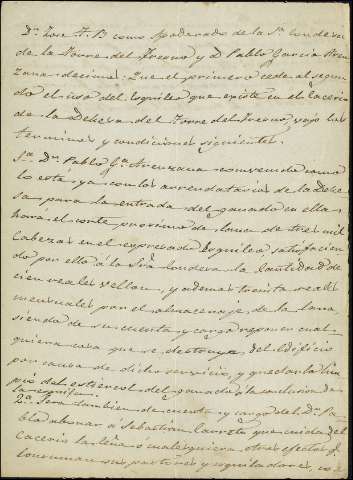 Dn. José F. B como Apoderado de la Sra. Condesa
de la Torre del Fresno y D Pablo García Aren
zana decimos: Que el primero cede al segun
do el uso del Esquileo que existe en el Cacerio
de la Dehesa del Torre del Fresno, vajo los
terminos y condiciones siguientes.
1ª Dn. Pablo Ga. Arenzana conviendo como
lo está ya con los arrendatarios de la dehe
sa para la entrada del ganado en ella
hará el corte proximo de lana de tres mil
cabezas en el expresado Esquileo, satisfacien
do por ello á la Sra. Condesa la Cantidad de
cien reales vellon, y ademas treinta reales
mensuales por el almacenaje de la lana,
siendo de su cuenta y cargo reponer cual
quiera cosa que se destruya del Edificio
por causa de dicho servicio, y quedar lim
pio del estiercol del ganado á la conclusion de
la esquileo.
2ª Será tambien de cuenta y cargo del Dn. Pa
blo abonar á Sebastian que cuida del
cacerio la leña ó cualesquiera otros efectos q.
consuman sus pastores y esquiladores, co